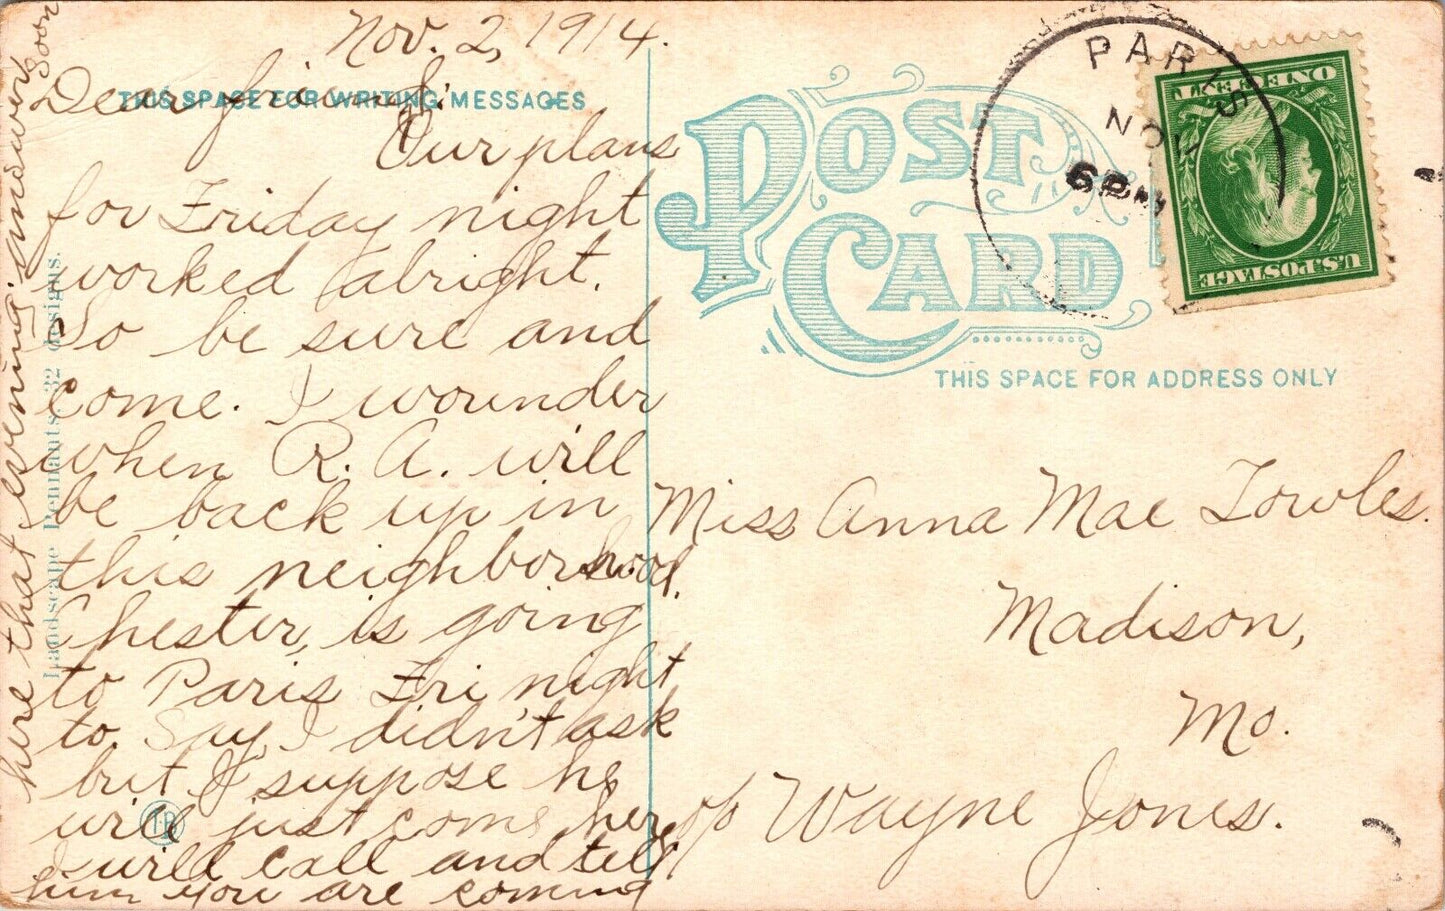 Nov. 2, 1914.
Dear friend:
THIS SPACE FOR WRITING MESSAGES
Our plans
for Friday night
worked alright.
So be sure and
come. I wounder
when R. A. will
be back up in
this neighborhood.
Chester, is going
to Paris Fri night
to. Say, I didn't ask
but I suppose he
will just come here
I will call and tell
him you are coming
here that evening. answer
soon
Landscape Pennants. 32 designs.
POST
CARD
THIS SPACE FOR ADDRESS ONLY
PARIS
NOV
6 PM
U.S. POSTAGE
ONE CENT 1
Miss Anna Mae Towles.
Madison,
Mo.
c/o Wayne Jones.